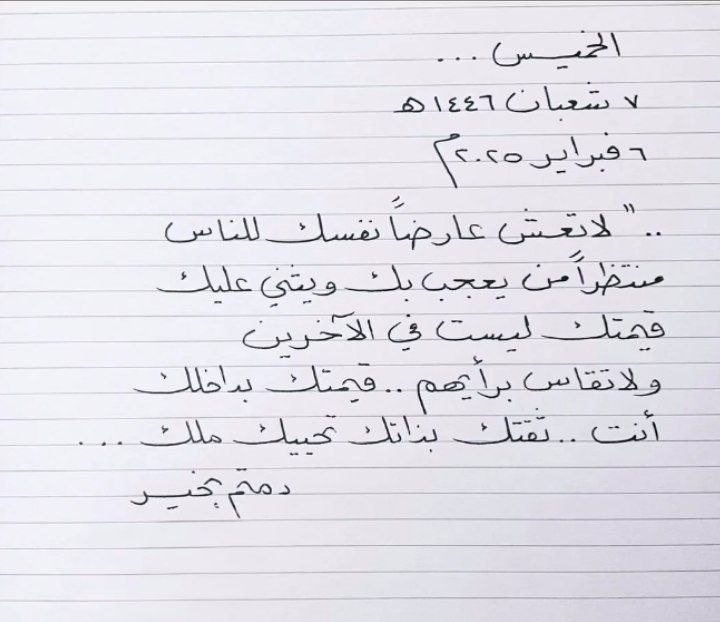 الخميس ...
٧ شعبان ١٤٤٦هـ
٦ فبراير ٢٠٢٥م
.." لا تعش عارضاً نفسك للناس
منتظراً من يعجب بك ويثني عليك
قيمتك ليست في الآخرين
ولا تقاس برأيهم .. قيمتك بداخلك
أنت .. ثقتك بذاتك تحييك ملك ...
دمتم بخير